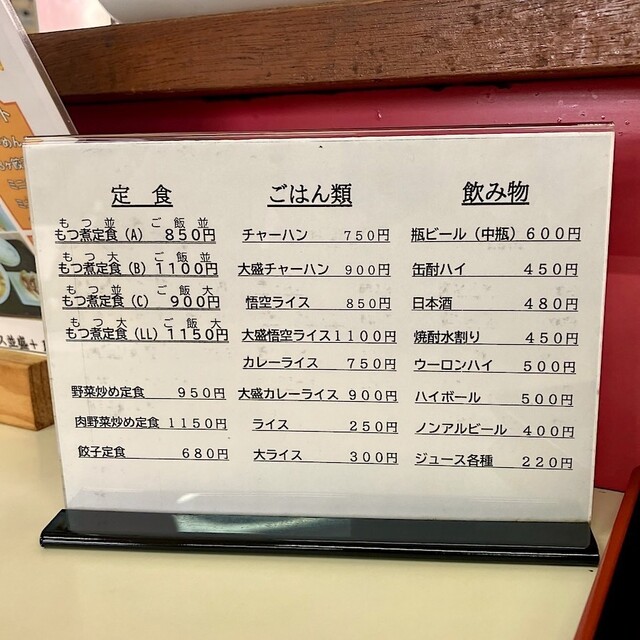 定 食
もつ並 ご飯並
もつ煮定食(A) 850円
もつ大 ご飯並
もつ煮定食(B) 1100円
もつ並 ご飯大
もつ煮定食(C) 900円
もつ大 ご飯大
もつ煮定食(LL) 1150円
野菜炒め定食 950円
肉野菜炒め定食 1150円
餃子定食 680円
ごはん類
チャーハン 750円
大盛チャーハン 900円
悟空ライス 850円
大盛悟空ライス1100円
カレーライス 750円
大盛カレーライス 900円
ライス 250円
大ライス 300円
飲み物
瓶ビール(中瓶) 600円
缶酎ハイ 450円
日本酒 480円
焼酎水割り 450円
ウーロンハイ 500円
ハイボール 500円
ノンアルビール 400円
ジュース各種 220円